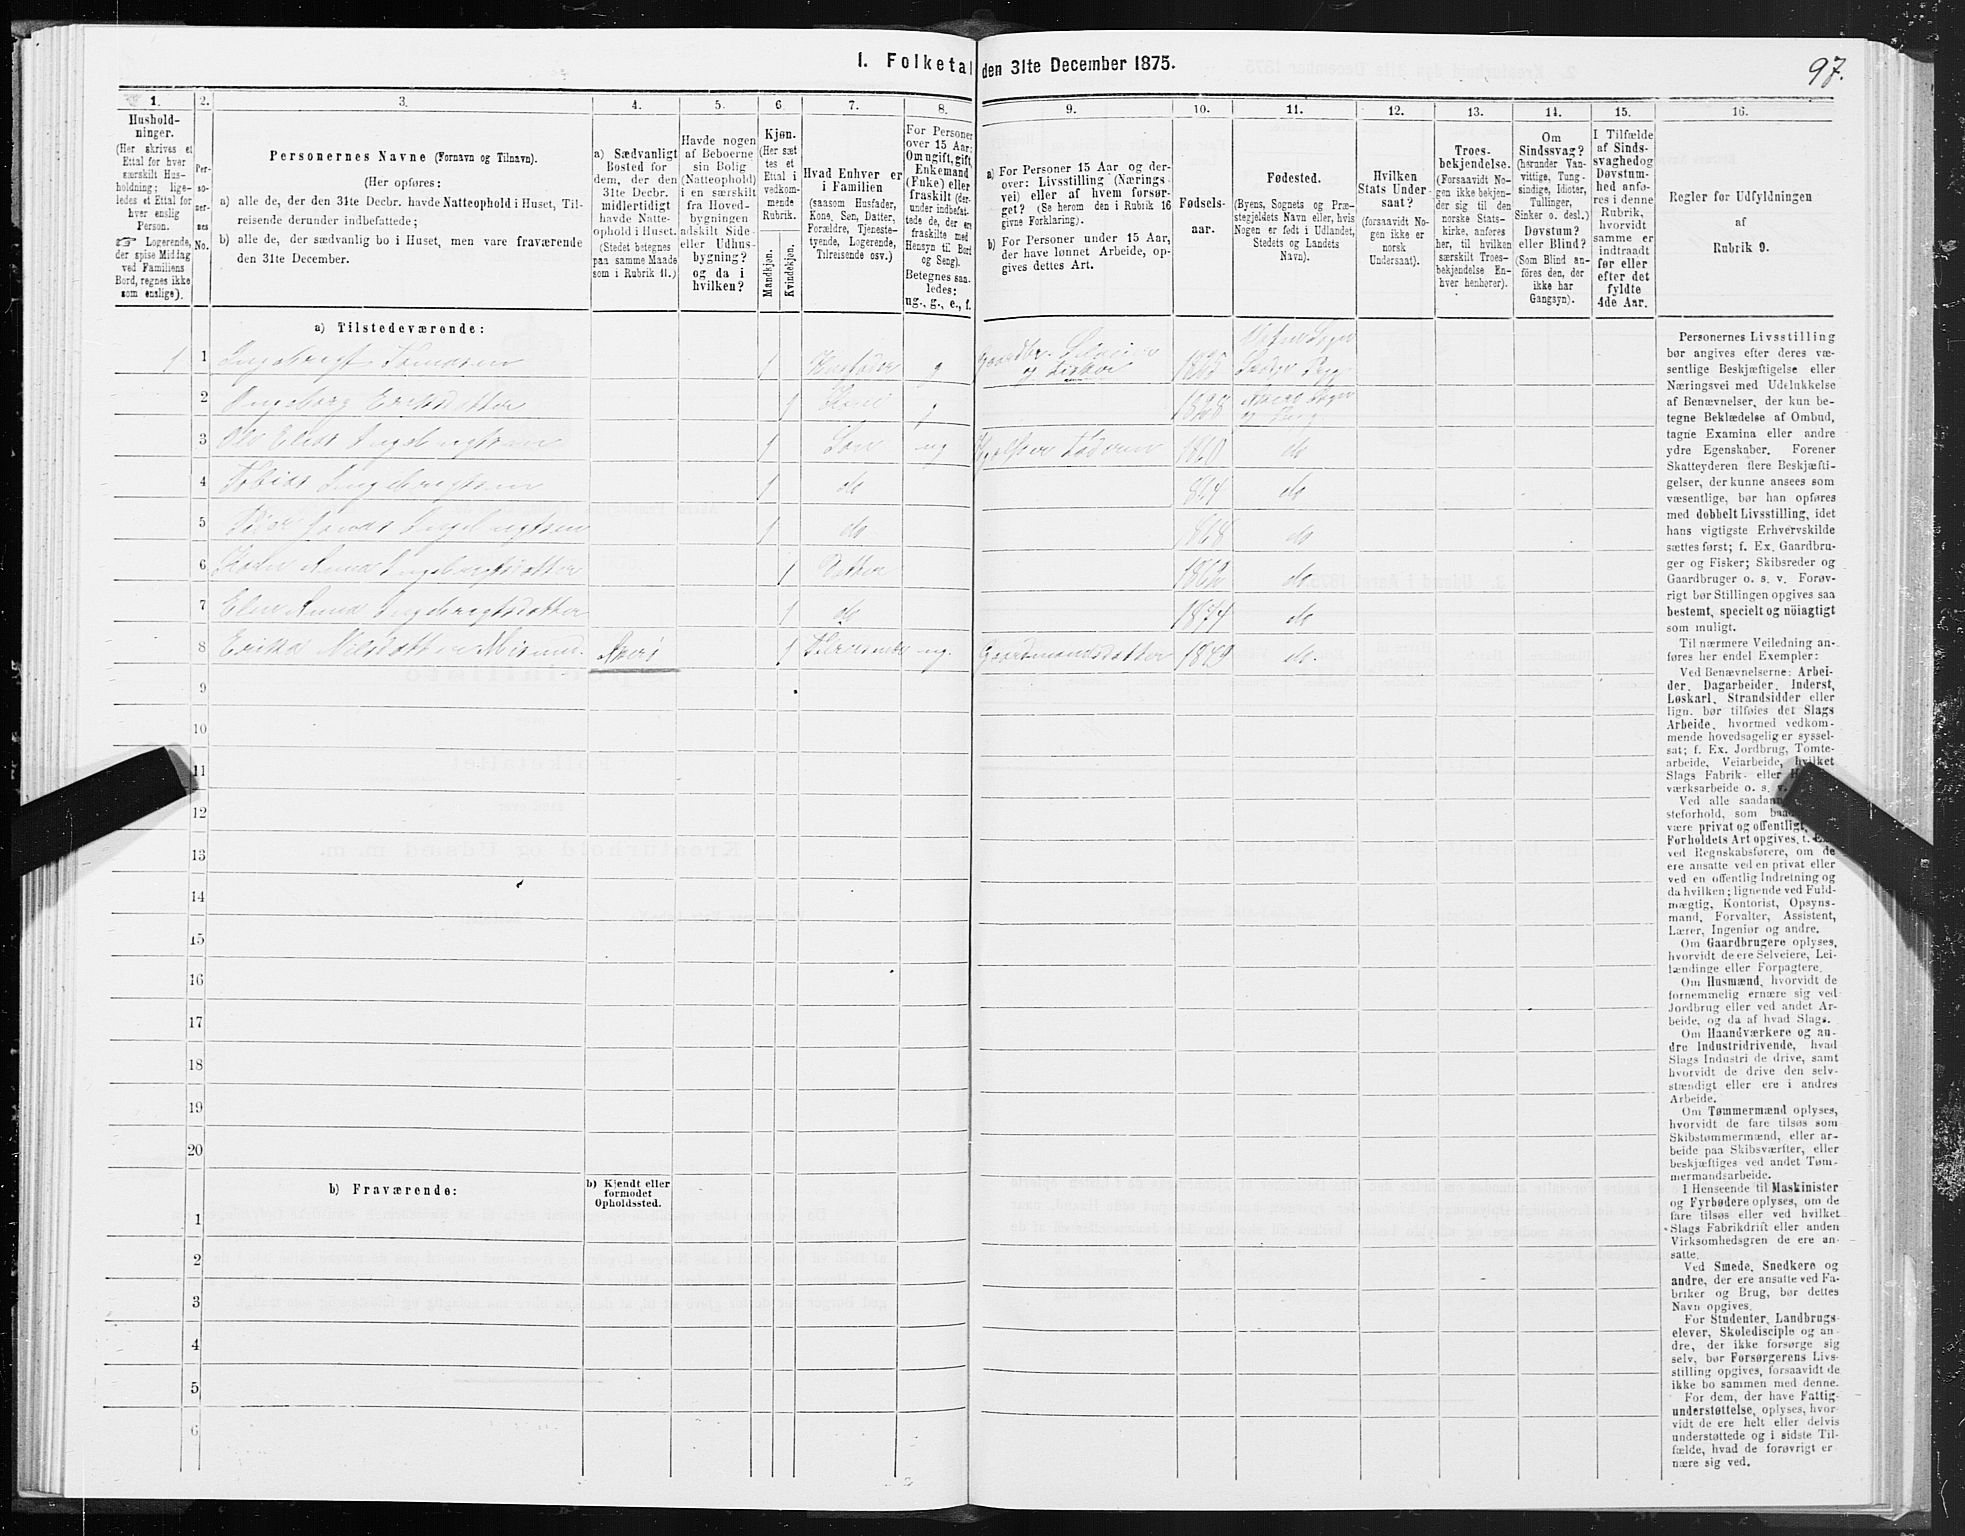 1. Folketal den 31te December 1875.
97.
1.
Hushold-
ninger.
(Her skrives et
Ettal for hver
særskilt Hus-
holdning; lige-
ledes et Ettal for
hver enslig
Person.
☞ Logerende,
der spise Middag
ved Familiens
Bord, regnes ikke
som enslige).
2.
Per-
so-
ner-
nes
No.
3.
Personernes Navne (Fornavn og Tilnavn).
(Her opføres:
a) alle de, der den 31te Decbr. havde Natteophold i Huset, Til-
reisende derunder indbefattede;
b) alle de, der sædvanlig bo i Huset, men vare fraværende
den 31te December.
4.
a) Sædvanligt
Bosted for
dem, der den
31te Decbr.
midlertidigt
havde Natte-
ophold i Huset.
(Stedet betegnes
paa samme Maade
som i Rubrik 11.)
5.
Havde nogen
af Beboerne
sin Bolig
(Natteophold)
i en særskilt
fra Hoved-
bygningen
adskilt Side-
eller Udhus-
bygning?
og da i
hvilken?
6.
Kjøn.
(Her sæt
tes et
Ettal i
vedkom-
mende
Rubrik.
Mandkjøn.
Kvindekjøn.
7.
Hvad Enhver er
i Familien
(saasom Husfader,
Kone, Søn, Datter,
Forældre, Tjeneste-
tyende, Logerende,
Tilreisende osv.)
8.
For Personer
over 15 Aar:
Om ugift, gift,
Enkemand
(Enke) eller
fraskilt (der-
under indbefat-
tede de, der ere
fraskilte med
Hensyn til Bord
og Seng).
Betegnes saa-
ledes:
ug., g., e., f.
9.
a) For Personer 15 Aar og der-
over: Livsstilling (Nærings-
vei) eller af hvem forsør-
get? (Se herom den i Rubrik 16
givne Forklaring).
b) For Personer under 15 Aar,
der have lønnet Arbeide, op-
gives dettes Art.
10.
Fødsels-
aar.
11.
Fødested.
(Byens, Sognets og Præ-
stegjeldets Navn eller, hvis
Nogen er født i Udlandet,
Stedets og Landets
Navn).
12.
Hvilken
Stats Under-
saat?
(forsaavidt No-
gen ikke er
norsk
Undersaat).
13.
Troes-
bekjendelse.
(Forsaavidt No-
gen ikke bekjen-
der sig til den
norske Stats-
kirke, anføres
her, til hvilken
særskilt Troes-
bekjendelse En-
hver henhører).
14.
Om
Sindssvag?
(herunder Van-
vittige, Tung-
sindige, Idioter,
Tullinger,
Sinker o. desl.)
Døvstum?
eller Blind?
(Som Blind an-
føres den, der
ikke har
Gangsyn).
15.
I Tilfælde
af Sinds-
svaghed og
Døvstum-
hed anfø-
res i denne
Rubrik,
hvorvidt
samme er
indtraadt
før eller
efter det
fyldte
4de Aar.
16.
Regler for Udfyldningen
af
Rubrik 9.
a) Tilstedeværende:
1 1 1 Husfader g og Fisker
2 Ingeborg Eriksdatter 1 Kone g
3 Ole Elias Ingebrigtsen 1 Søn ug 1860 do
4 Tobias Ingebrigtsen 1 do 1864 do
5 Ingebrigtsen 1 do 1868 do
6 Ingebrigtsdatter 1 Datter do
7 Elen Anna Ingebrigtsdatter 1 do 1874 do
8 Erika Nilsdatter 1 ug. Gaardmandsdatter 1849 do.
9
10
11
12
13
14
15
16
17
18
19
20
b) Fraværende:
b) Kjendt eller
formodet
Opholdssted.
1
2
3
4
5
6
Personernes Livsstilling
bør angives efter deres væ-
sentlige Beskjæftigelse eller
Næringsvei med Udelukkelse
af Benævnelser, der kun be-
tegne Beklædelse af Ombud,
tagne Examina eller andre
ydre Egenskaber. Forener
Skatteyderen flere Beskjæfti-
gelser, der kunne ansees som
væsentlige, bør han opføres
med dobbelt Livsstilling, idet
hans vigtigste Erhvervskilde
sættes først; f. Ex. Gaardbru-
ger og Fisker; Skibsreder og
Gaardbruger o. s. v. Forøv-
rigt bør Stillingen opgives saa
bestemt, specielt og nøiagtigt
som muligt.
Til nærmere Veiledning an-
føres her endel Exempler:
Ved Benævnelserne: Arbei-
der, Dagarbeider, Inderst,
Løskarl, Strandsidder eller
lign. bør tilføies det Slags
Arbeide, hvormed vedkom-
mende hovedsagelig er syssel-
sat; f. Ex. Jordbrug, Tomte-
arbeide, Veiarbeide, hvilket
Slags Fabrik- eller
værksarbeide o. s. v.
Ved alle saadan
steforhold, som
være privat og offentligt,
Forholdets Art opgives, t. Ex.
ved Regnskabsførere, om de
ere ansatte ved en privat eller
ved en offentlig Indretning og
da hvilken; lignende ved Fuld-
mægtig, Kontorist, Opsyns-
mand, Forvalter, Assistent,
Lærer, Ingeniør og andre.
Om Gaardbrugere oplyses,
hvorvidt de ere Selveiere, Lei-
lændinge eller Forpagtere.
Om Husmænd, hvorvidt de
fornemmelig ernære sig ved
Jordbrug eller ved andet Ar-
beide, og da af hvad Slags.
Om Haandværkere og an-
dre Industridrivende, hvad
Slags Industri de drive, samt
hvorvidt de drive den selv-
stændigt eller ere i andres
Arbeide.
Om Tømmermænd oplyses,
hvorvidt de fare tilsøs som
Skibstømmermænd, eller ar-
beide paa Skibsværfter, eller
beskjæftiges ved andet Tøm-
mermandsarbeide.
I Henseende til Maskinister
og Fyrbødere oplyses, om de
fare tilsøs eller ved hvilket
Slags Fabrikdrift eller anden
Virksomhedsgren de ere an-
satte.
Ved Smede, Snedkere og
andre, der ere ansatte ved Fa-
briker og Brug, bør dettes
Navn opgives.
For Studenter, Landbrugs-
elever, Skoledisciple og an-
dre, der ikke forsørge sig
selv, bør Forsørgerens Livs-
stilling opgives, forsaavidt de
ikke bo sammen med denne.
For dem, der have Fattig-
understøttelse, oplyses, hvor-
vidt de ere helt eller delvis
understøttede og i sidste Til-
fælde, hvad de forøvrigt er-
nære sig ved.